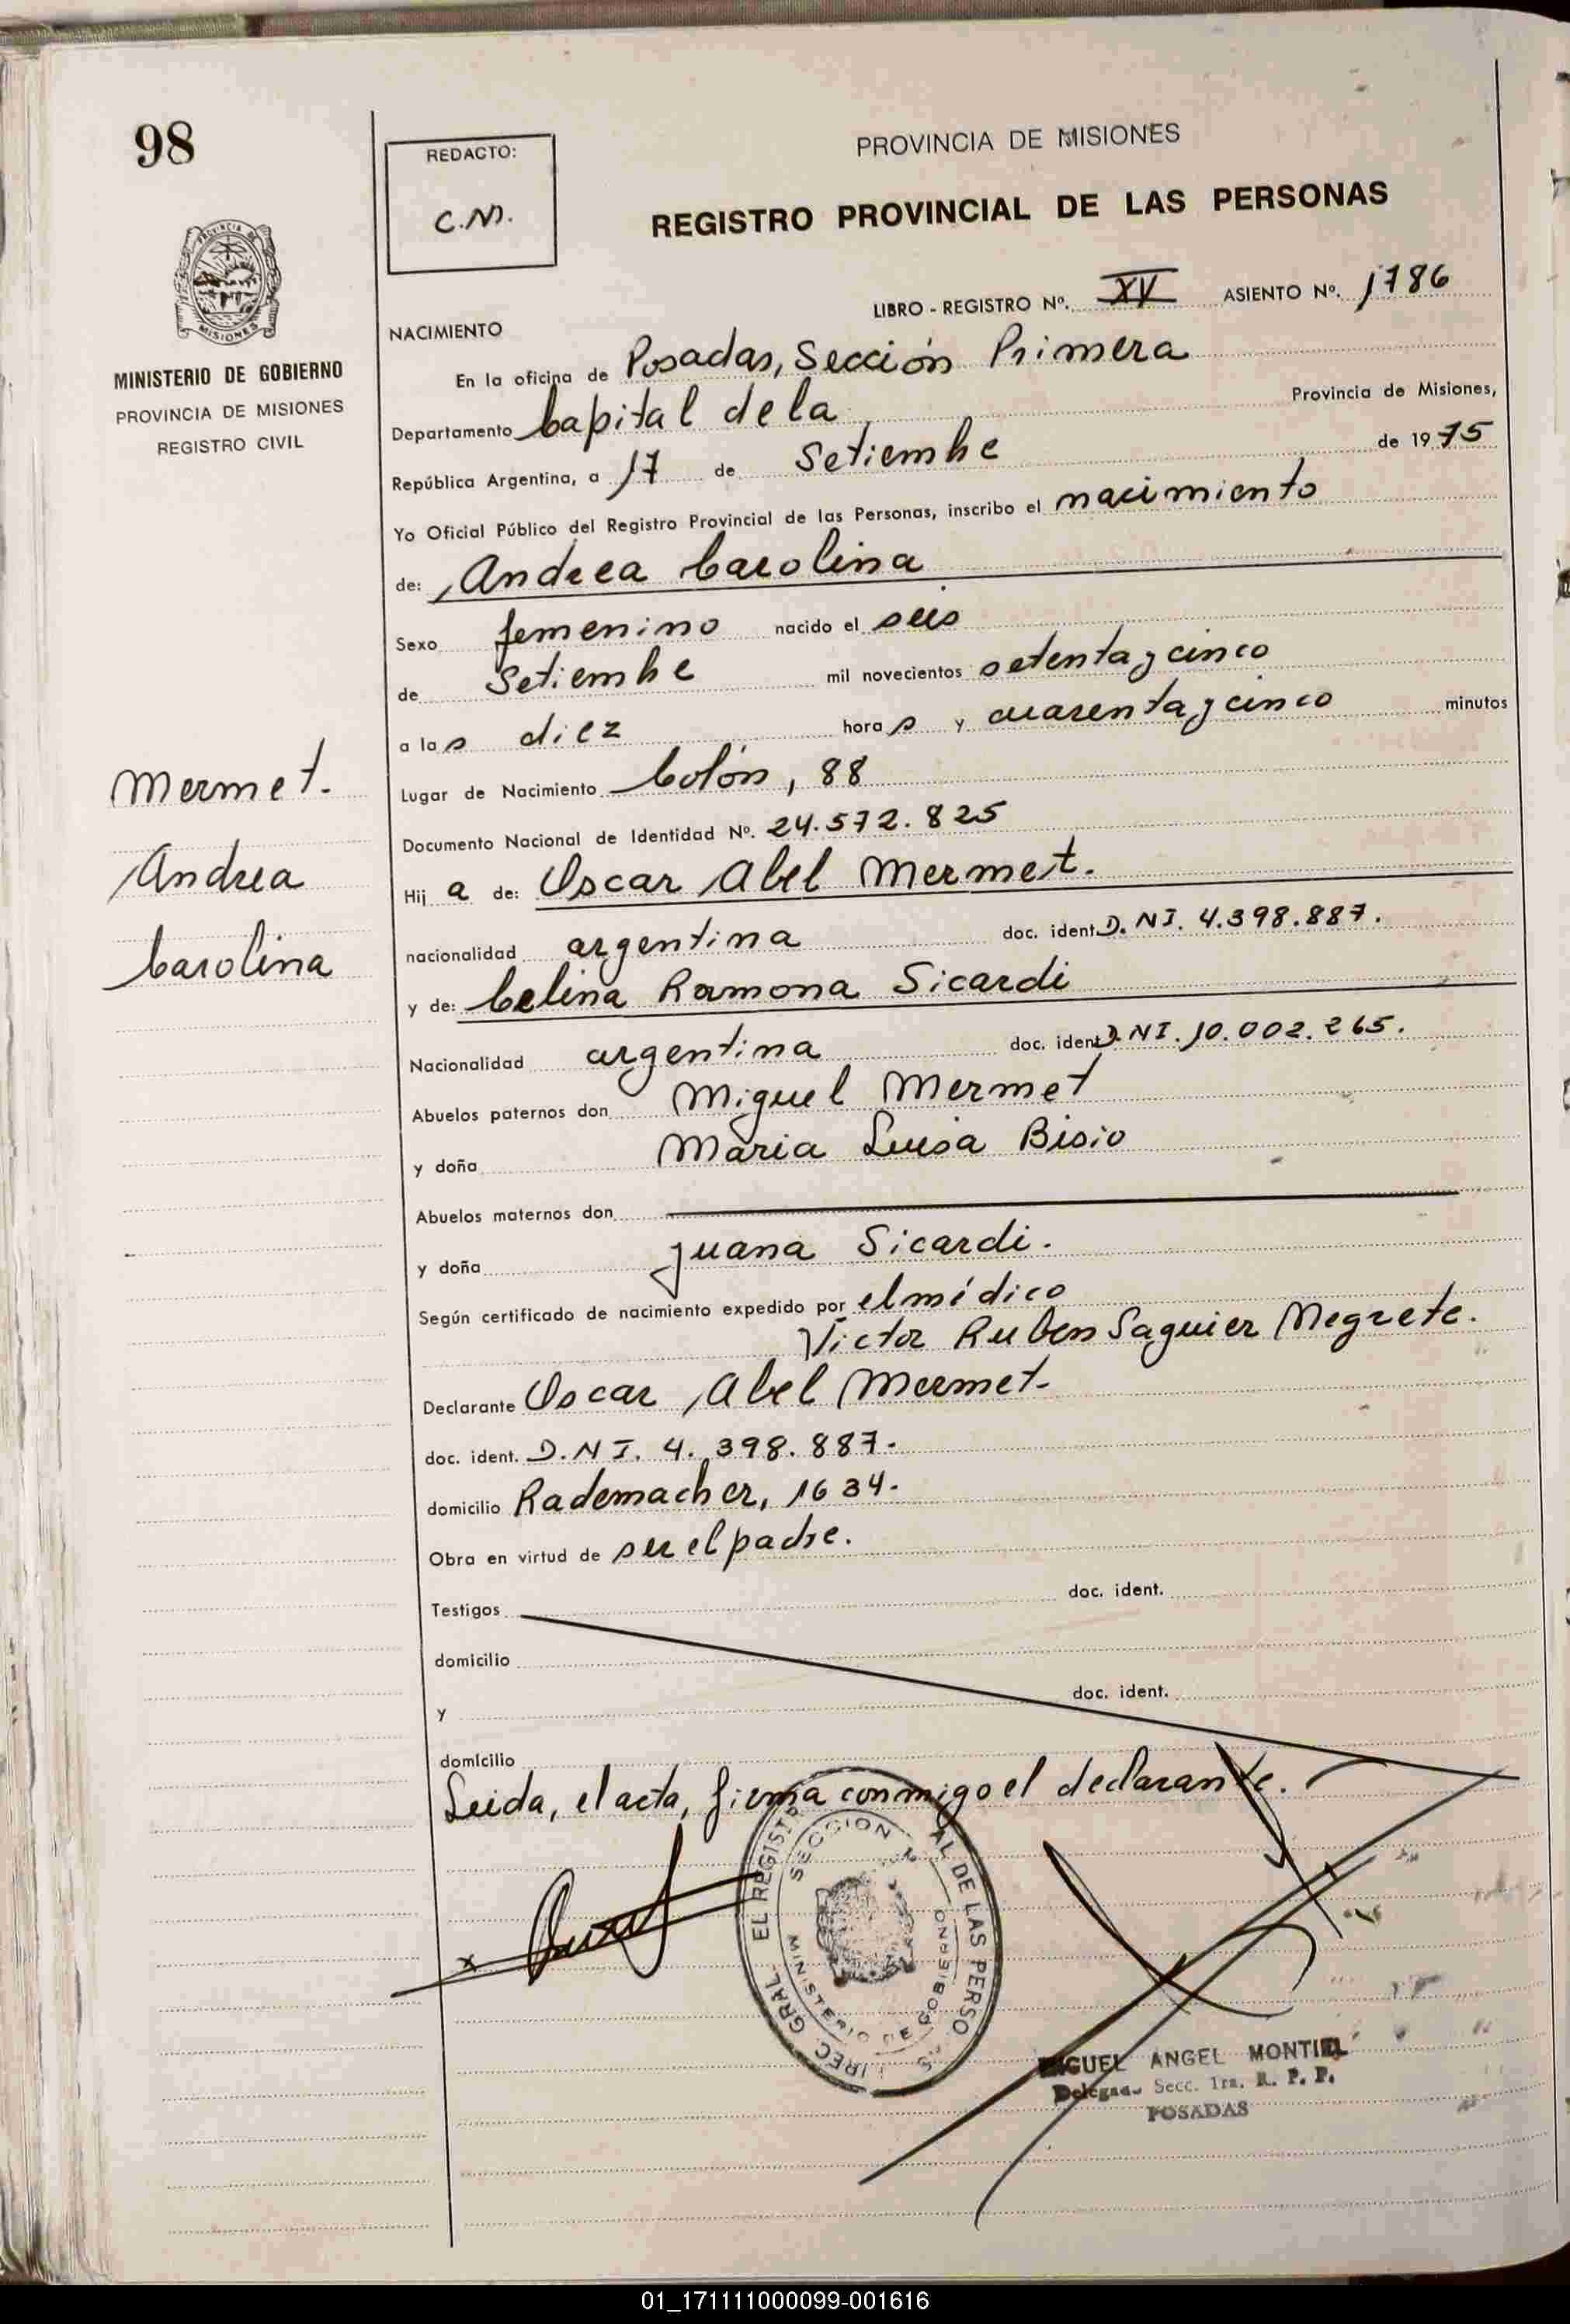 98
REDACTO:
C.N.
PROVINCIA DE MISIONES
REGISTRO PROVINCIAL DE LAS PERSONAS
MISIONES
MINISTERIO DE GOBIERNO
PROVINCIA DE MISIONES
REGISTRO CIVIL
LIBRO - REGISTRO Nº. XV ASIENTO Nº. 1786
NACIMIENTO
En la oficina de Posadas, Sección Primera
Departamento Capital de la Provincia de Misiones,
República Argentina, a 17 de Setiembre de 1975
Yo Oficial Público del Registro Provincial de las Personas, inscribo el nacimiento
de: Andrea Carolina
Sexo femenino nacido el seis
de Setiembre mil novecientos setenta y cinco
a las diez horas y cuarenta y cinco minutos
Lugar de Nacimiento Colón, 88
Documento Nacional de Identidad Nº. 24.572.825
Hij a de: Oscar Abel Mermet.
nacionalidad argentina doc. ident. D.NI. 4.398.887.
y de: Celina Ramona Sicardi
Nacionalidad argentina doc. ident. D.NI. 10.002.265.
Abuelos paternos don Miguel Mermet
y doña Maria Luisa Bisio
Abuelos maternos don
y doña Juana Sicardi.
Según certificado de nacimiento expedido por el médico
Victor Ruben Saguier Negrete.
Declarante Oscar Abel Mermet.
doc. ident. D.N I. 4.398.887.
domicilio Rademacher, 1634.
Obra en virtud de ser el padre.
Testigos doc. ident.
domicilio
y doc. ident.
domicilio
Leida, el acta, firma conmigo el declarante.
Mermet.
Andrea
Carolina
SECCION
MINISTERIO DE GOBIERNO
MIGUEL ANGEL MONTIEL
Delegado Secc. 1ra. R. P. P.
POSADAS
01_171111000099-001616